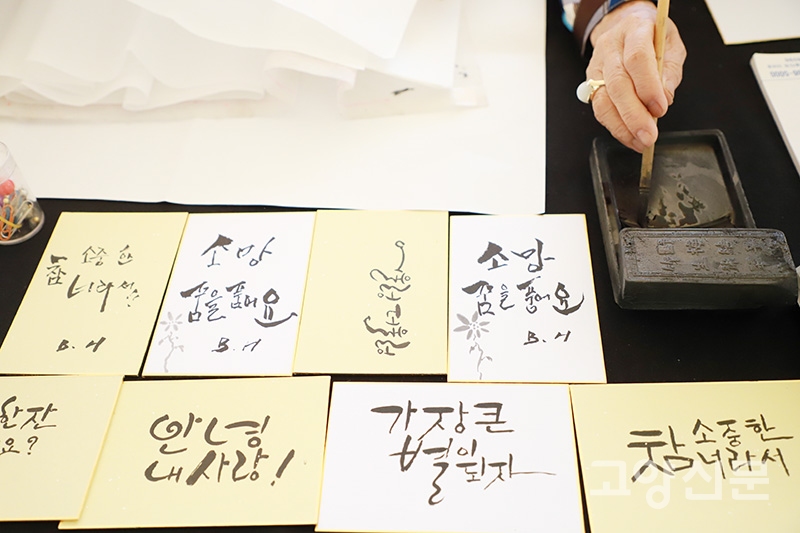 참 소중한
너라서!
B.H
소망
꿈을 품어요
B.H
소망
꿈을 품어요
B.H
한잔
요?
안녕
내 사랑!
가장 큰
별이 되자
참 소중한
너라서
고양신문